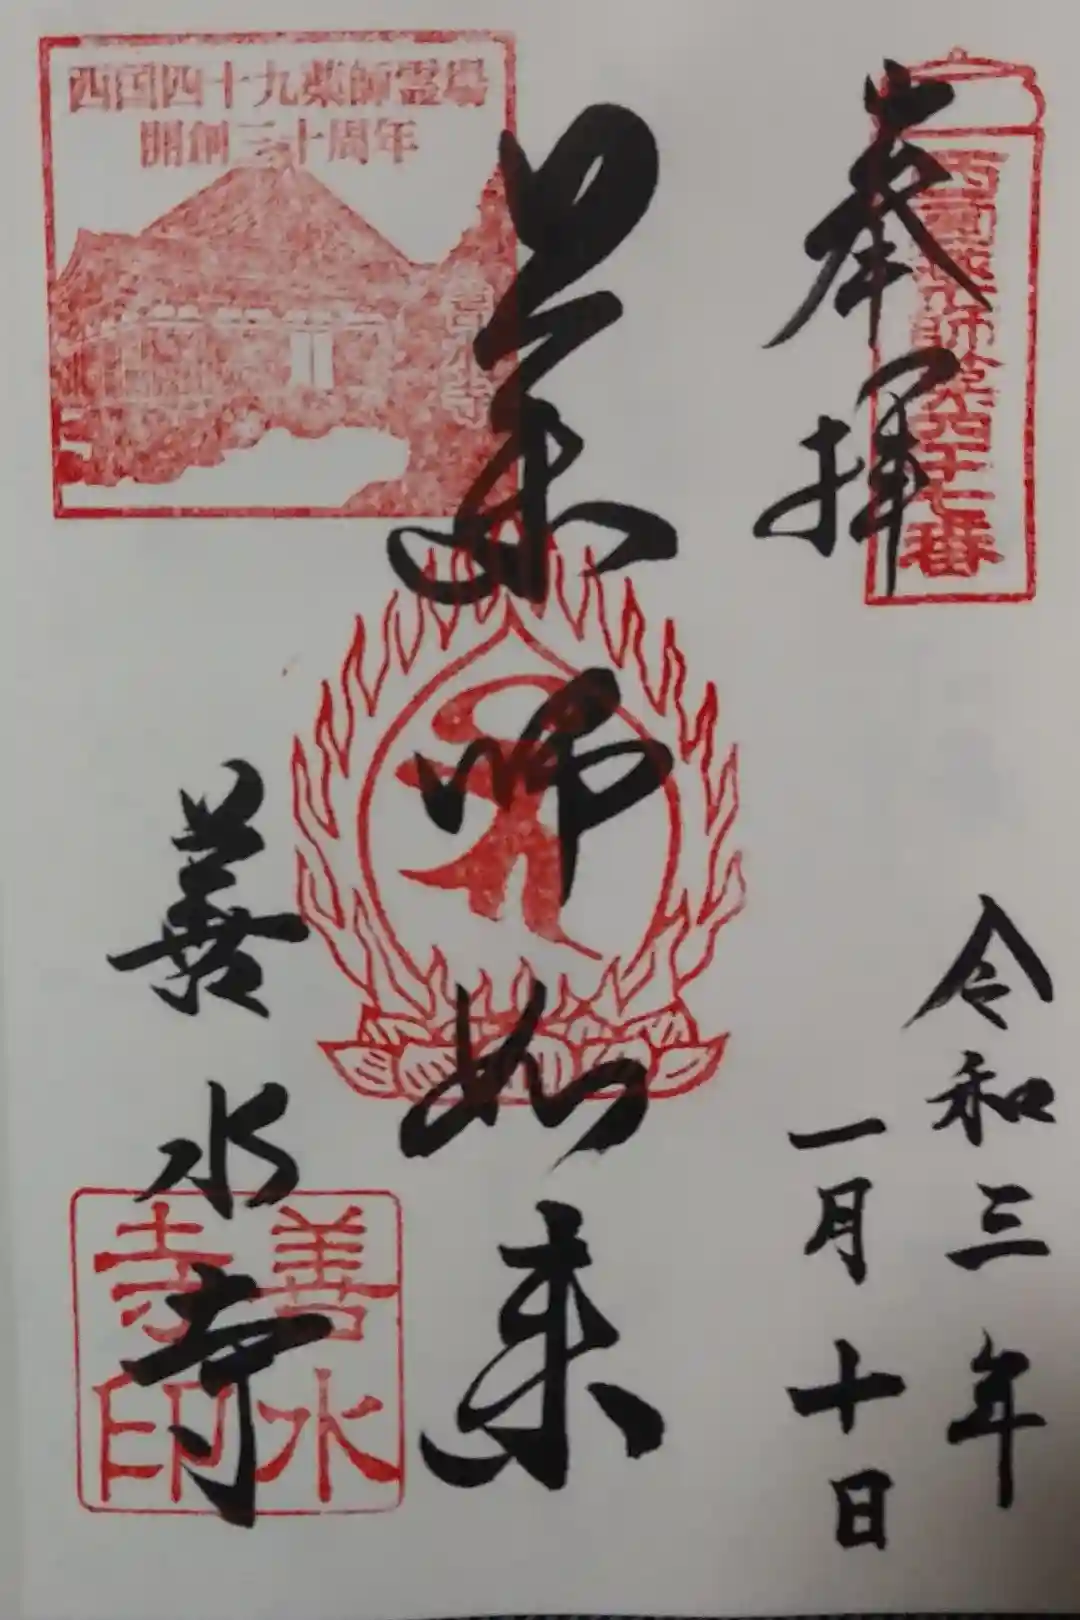 奉拝
西国薬師第四十七番
令和三年
一月十日
薬師如来
西国四十九薬師霊場
開創三十周年
善水寺
善水寺
善水寺印